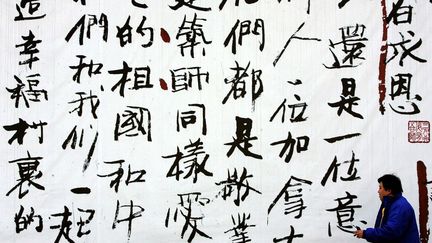 成恩
還是一位意
人一位加拿大
們都是敬業
築師同樣愛
的祖國和中
們和我們一起
造幸福村裏的